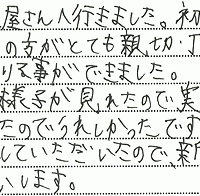 屋さんへ行きました。初
の方がとても親切・丁
りる事ができました。
様子が見れたので実
たのでうれしかったです
していただいたので、新
います。